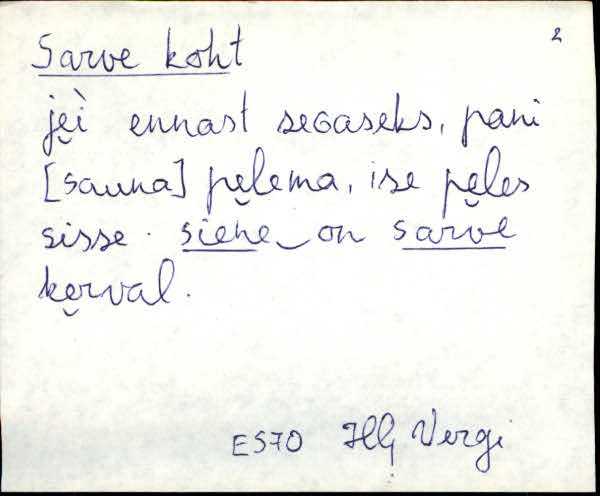 2
Sarve koht
je̮i̬ ennast seɢaseks, pani
[sauna] pe̮lema, ise pe̮les
sisse. siene‿on sarve
ke̮rval.
ES70 Hlj Vergi